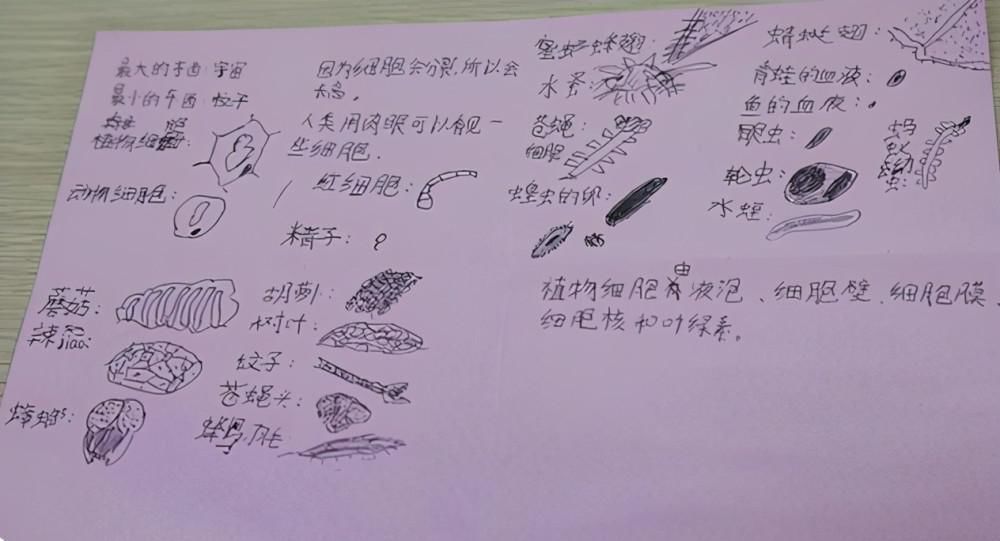 最大的东西:宇宙
最小的东西:粒子
植物细胞:
动物细胞:
因为细胞会分裂,所以会
长高。
人类用肉眼可以看见一
些细胞.
红细胞:
精子:
蘑菇:
辣jiao:
蟑螂:
胡萝卜:
树叶:
蚊子:
苍蝇头:
蜂鸟
蜜蜂
翅:
水蚤:
苍蝇:
细胞
蝗虫的卵:
蜻蜓翅:
青蛙的血液:
鱼的血液:
眼虫:
轮虫:
水蛭:
蚂
蚁
幼
虫:
植物细胞由液泡、细胞壁、细胞膜、
细胞核和叶绿素。